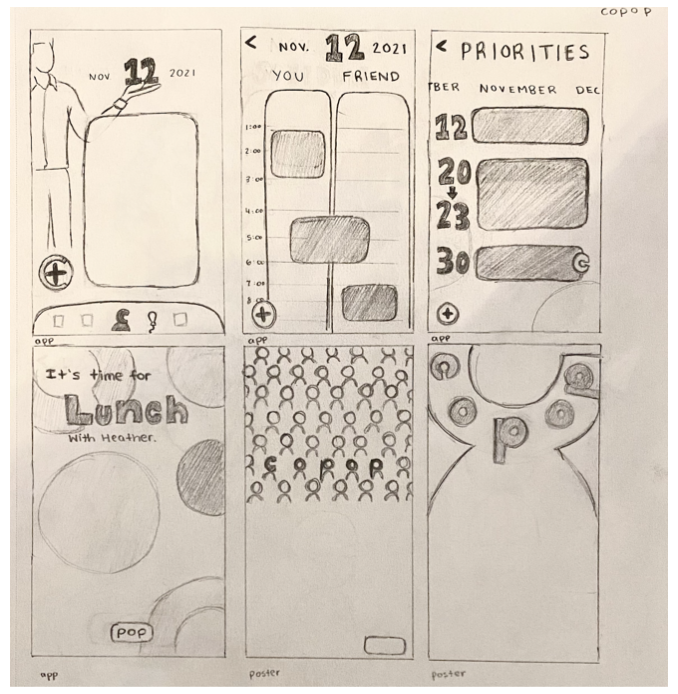 copop
NOV 12 2021
app
< NOV. 12 2021
YOU FRIEND
1:00
2:00
3:00
4:00
5:00
6:00
7:00
app
< PRIORITIES
BER NOVEMBER DEC
12
20
23
30
app
It's time for
Lunch
With Heather.
POP
app
copop
poster
p
poster